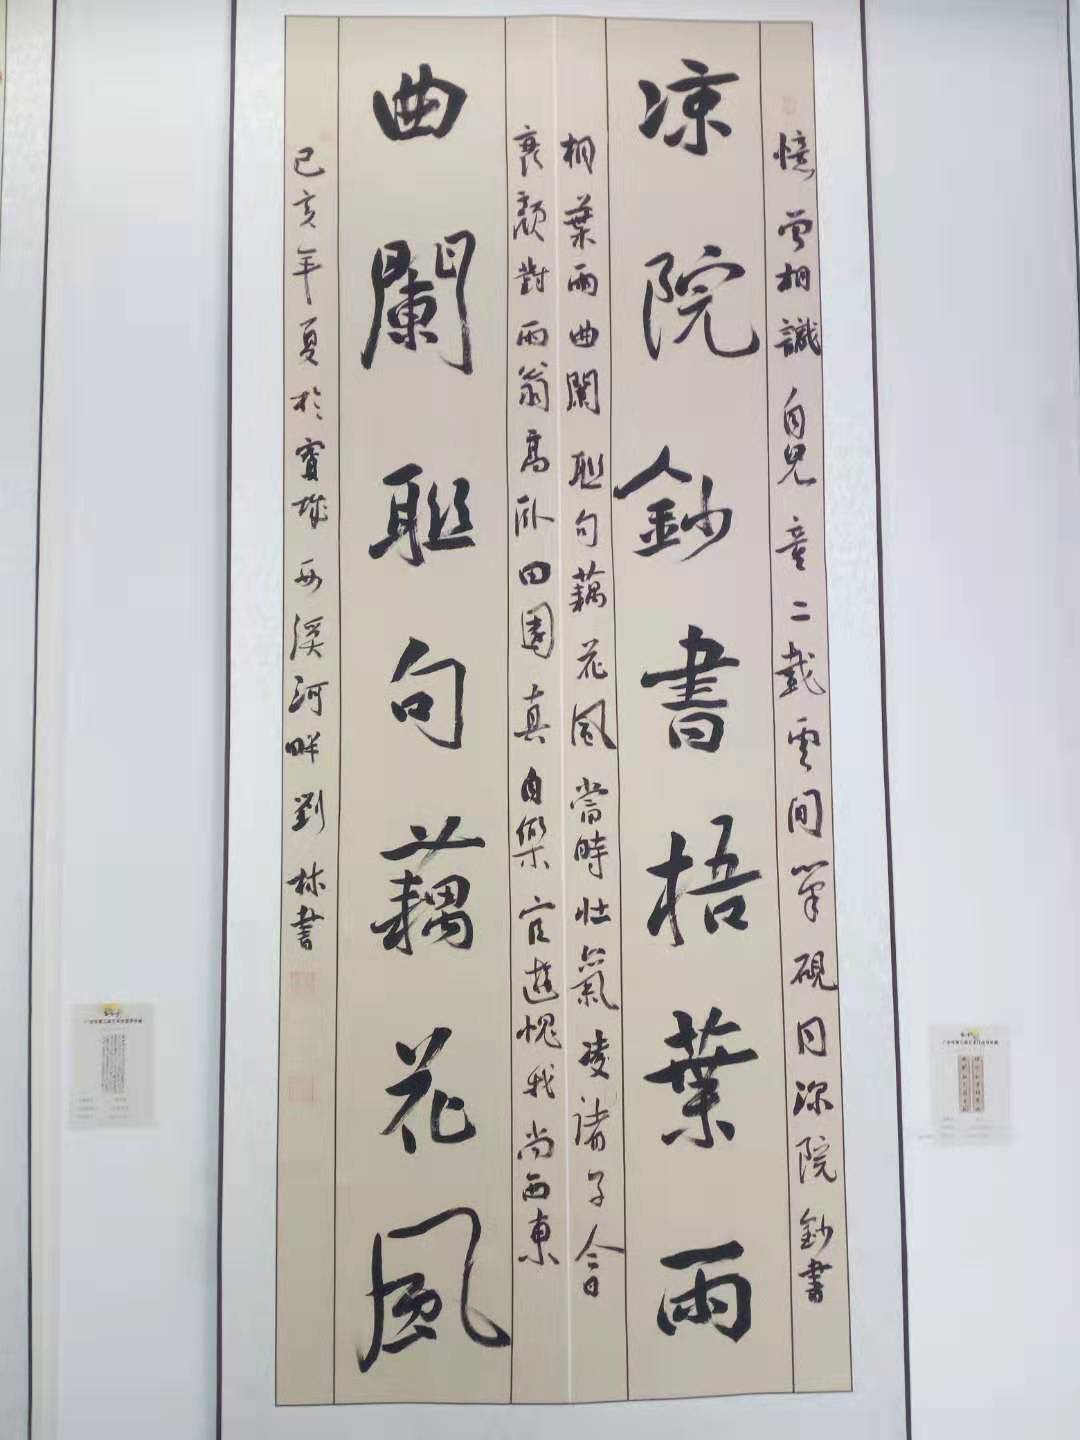 憶曾相識自兒童二載雲間筆硯同深院鈔書
凉院鈔書梧葉雨
桐葉雨曲闌聯句藕花風當時壯氣凌諸子今日
衰顏對兩翁高臥田園真自樂宦遊愧我尚西東
曲闌聯句藕花風
己亥年夏於賨城西溪河畔劉林書